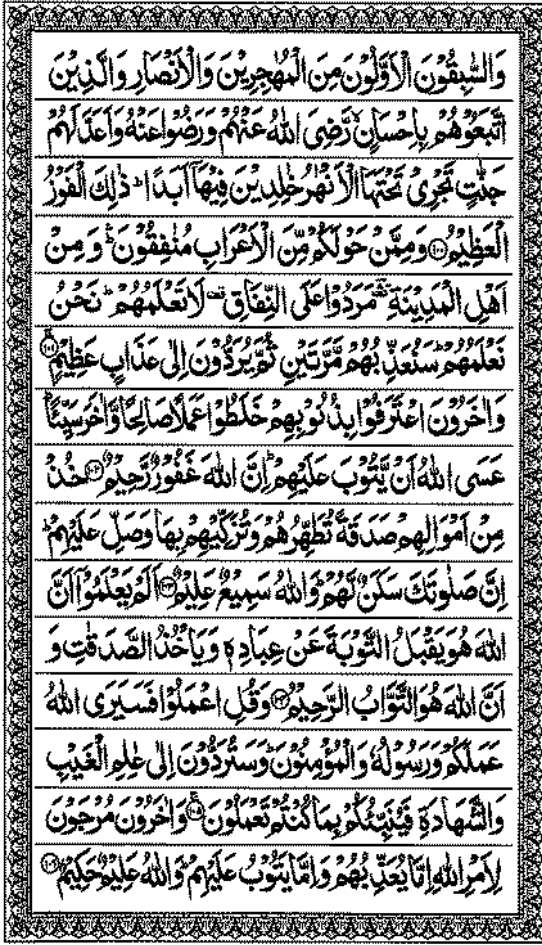 وَالسّٰبِقُوۡنَ الۡاَوَّلُوۡنَ مِنَ الۡمُهٰجِرِيۡنَ وَالۡاَنۡصَارِ وَالَّذِيۡنَ
اتَّبَعُوۡهُمۡ بِاِحۡسَانٍ ۙ رَّضِىَ اللّٰهُ عَنۡهُمۡ وَرَضُوۡا عَنۡهُ وَاَعَدَّ لَهُمۡ
جَنّٰتٍ تَجۡرِىۡ تَحۡتَهَا الۡاَنۡهٰرُ خٰلِدِيۡنَ فِيۡهَاۤ اَبَدًا ؕ ذٰلِكَ الۡفَوۡزُ
الۡعَظِيۡمُ ﴿۱۰۰﴾ وَمِمَّنۡ حَوۡلَكُمۡ مِّنَ الۡاَعۡرَابِ مُنٰفِقُوۡنَ ؕ وَ مِنۡ
اَهۡلِ الۡمَدِيۡنَةِ مَرَدُوۡا عَلَى النِّفَاقِ لَا تَعۡلَمُهُمۡ ؕ نَحۡنُ
نَعۡلَمُهُمۡ ؕ سَنُعَذِّبُهُمۡ مَّرَّتَيۡنِ ثُمَّ يُرَدُّوۡنَ اِلٰى عَذَابٍ عَظِيۡمٍ ﴿۱۰۱﴾
وَاٰخَرُوۡنَ اعۡتَرَفُوۡا بِذُنُوۡبِهِمۡ خَلَطُوۡا عَمَلًا صَالِحًا وَّاٰخَرَ سَيِّئًا ؕ
عَسَى اللّٰهُ اَنۡ يَّتُوۡبَ عَلَيۡهِمۡ ؕ اِنَّ اللّٰهَ غَفُوۡرٌ رَّحِيۡمٌ ﴿۱۰۲﴾ خُذۡ
مِنۡ اَمۡوَالِهِمۡ صَدَقَةً تُطَهِّرُهُمۡ وَتُزَكِّيۡهِمۡ بِهَا وَصَلِّ عَلَيۡهِمۡ ؕ
اِنَّ صَلٰوتَكَ سَكَنٌ لَّهُمۡ ؕ وَاللّٰهُ سَمِيۡعٌ عَلِيۡمٌ ﴿۱۰۳﴾ اَلَمۡ يَعۡلَمُوۡۤا اَنَّ
اللّٰهَ هُوَ يَقۡبَلُ التَّوۡبَةَ عَنۡ عِبَادِهٖ وَيَاۡخُذُ الصَّدَقٰتِ وَ
اَنَّ اللّٰهَ هُوَ التَّوَّابُ الرَّحِيۡمُ ﴿۱۰۴﴾ وَقُلِ اعۡمَلُوۡا فَسَيَرَى اللّٰهُ
عَمَلَكُمۡ وَرَسُوۡلُهٗ وَالۡمُؤۡمِنُوۡنَ ؕ وَسَتُرَدُّوۡنَ اِلٰى عٰلِمِ الۡغَيۡبِ
وَالشَّهَادَةِ فَيُنَبِّئُكُمۡ بِمَا كُنۡتُمۡ تَعۡمَلُوۡنَ ﴿۱۰۵﴾ وَاٰخَرُوۡنَ مُرۡجَوۡنَ
لِاَمۡرِ اللّٰهِ اِمَّا يُعَذِّبُهُمۡ وَاِمَّا يَتُوۡبُ عَلَيۡهِمۡ ؕ وَاللّٰهُ عَلِيۡمٌ حَكِيۡمٌ ﴿۱۰۶﴾